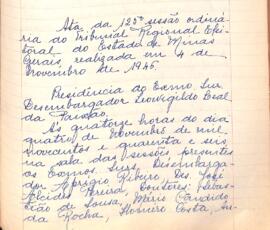 Ata da 125ª sessão ordiná
ria do Tribunal Regional Elei
toral do Estado de Minas
Gerais, realizada em 4 de
novembro de 1946.
Presidência do Exmo Snr
Desembargador Leovigildo Leal
da Paixão.
Às quatorze horas do dia
quatro de novembro de mil
novecentos e quarenta e seis
na sala das sessões, presentes
os Exmos. Snrs. Desembarga
dor Aprígio Ribeiro, Des. José
Alcides Pereira, Doutores: Sebas
tião de Sousa, Mério Candido
da Rocha, Homero Costa,